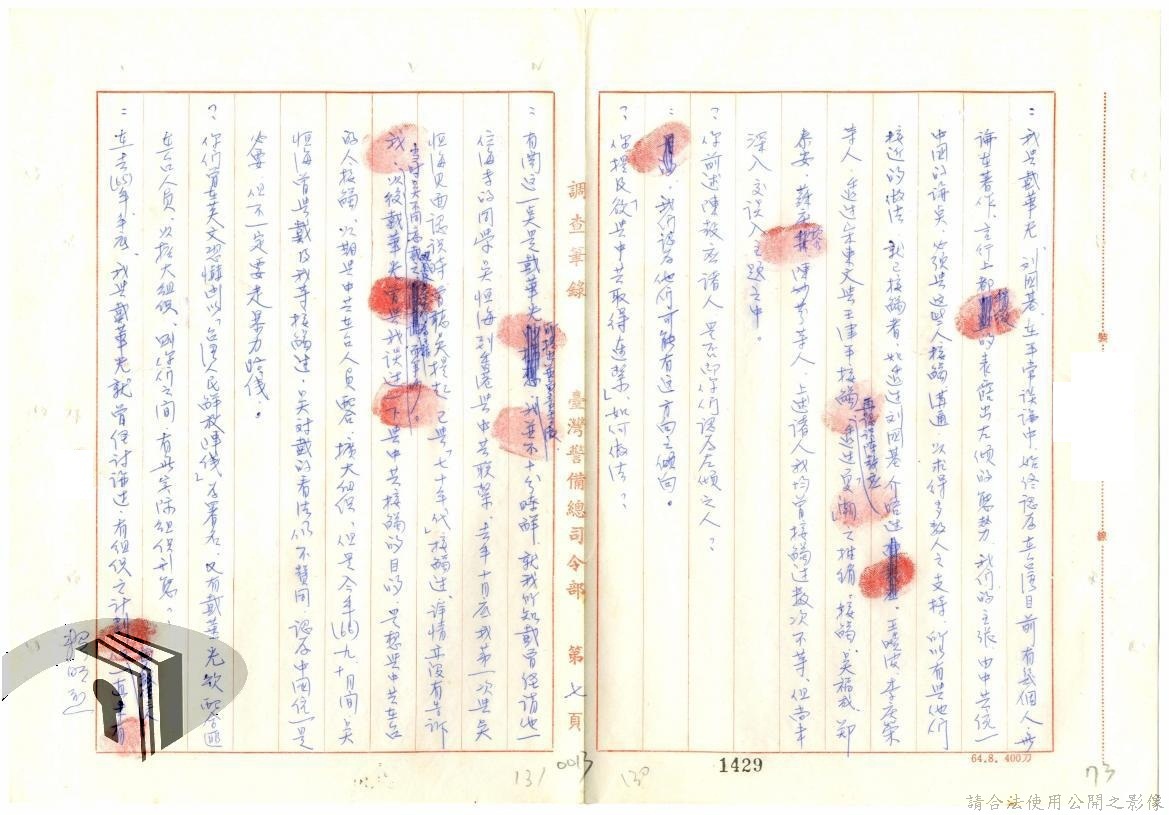 ：我與戴華光、劉國基、在平常談論中，始終認為在台灣目前，有幾個人無
論在著作、言行上都的表露出左傾的態勢，我們的主張，由中共統一
中國的論点，必須與這些人接觸溝通，以求得多数人之支持，所以有與他們
接近的做法，就已接觸者，如透過劉國基介紹過、王曉波、李慶榮
等人，透過與王津平接觸，透過夏潮之推銷，接觸吳福成、鄭
泰安、蘇慶黎、陳妙芬等人，上述諸人我均曾接觸過数次不等，但尚未
深入交談入主題之中。
？你前述陳毅應諸人，是否即你們認為左傾之人？
：是的，我們認為他們可能有這方向之傾向。
？你提及「欲與中共取得連繫」如何做法？
調查筆錄　臺灣警備總司令部　第七頁
：有關這一点是戴華光所提出，我並不十分瞭解，就我所知戴曾經請他一
位海專的同學吳恒海到香港與中共聯繫，去年十月底我第一次與吳
恒海見面認識時，曾聽吳提起已與「七十年代」接觸過，詳情並沒有告訴
我，次後戴華光曾與我談過一下與中共接觸的目的，是想與中共在台
的人接觸，以期與中共在台人員配合，擴大組織，但是今年(66)九、十月間吳
恒海曾與戴及我等接觸過，吳對戴的看法仍不贊同，認為中國統一是
必要，但不一定要走暴力路線。
？你們曾在英文恐嚇函以「台灣人民解放陣線」為署名，又有戴華光欲配合匪
在台人員，以擴大組織，則你們之間，有無實際組織形態？
：在去(65)年年底，我與戴華光就曾經討論過，有組織之計劃，在未有
1429
64.8. 400刀
73
130
131
0013
裝
線
請合法使用公開之影像